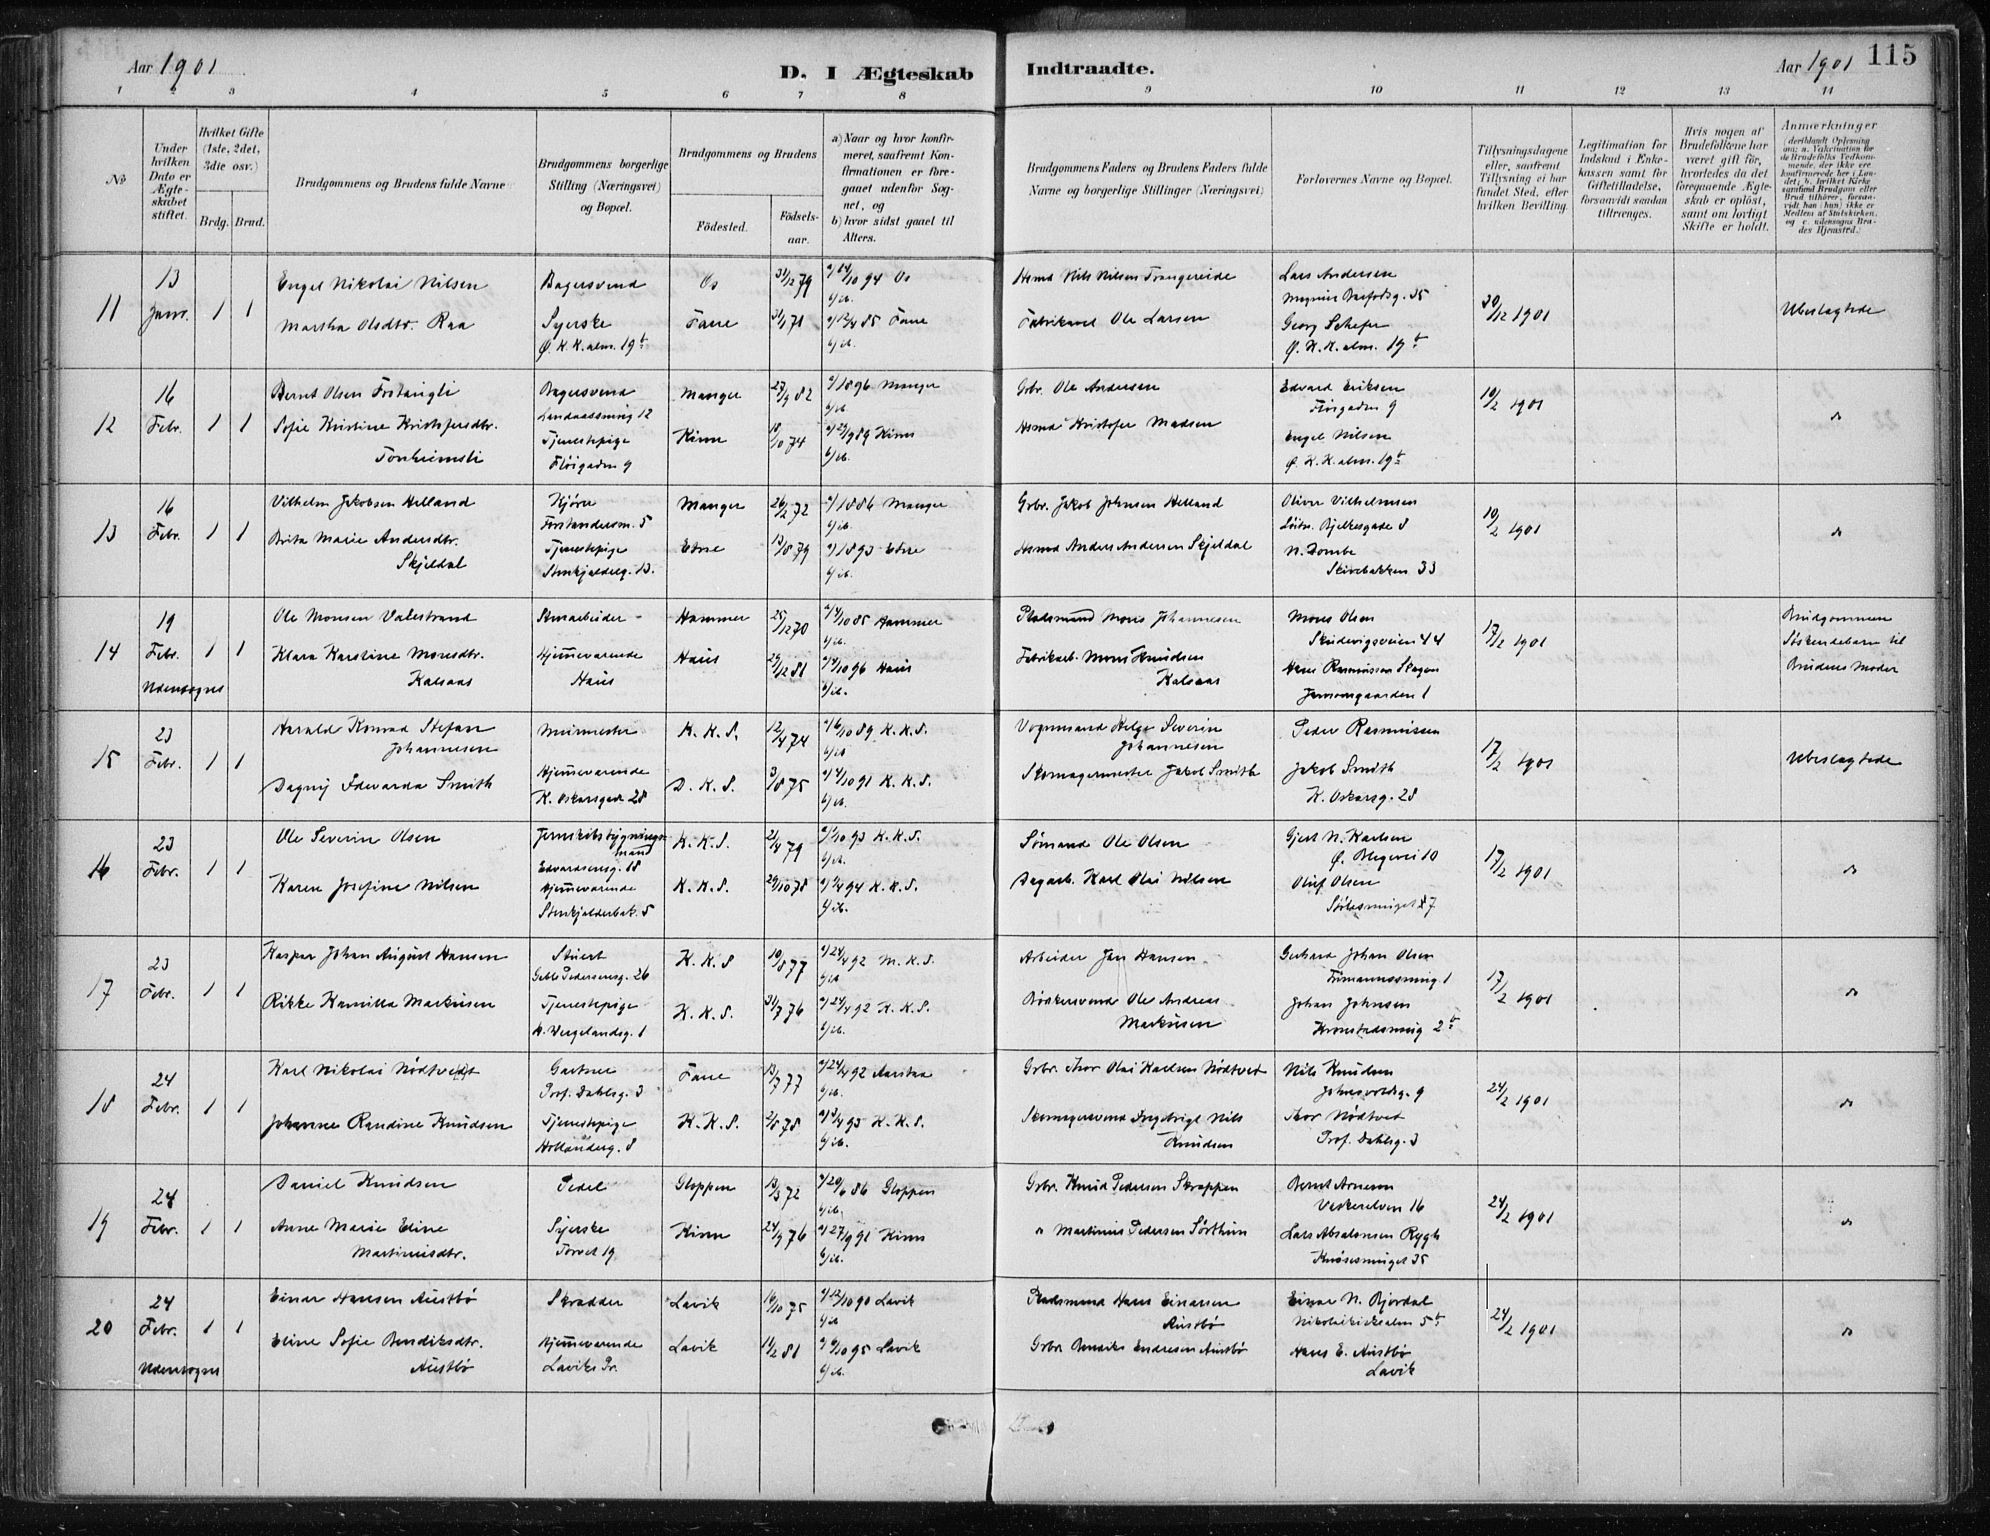 Aar 1901
D. I Ægteskab
Indtraadte.
Aar 1901
115
1 2 3 4 5 6 7 8 9 10 11 12 13 14
No
Under hvilken Dato er Ægteskabet stiftet.
Hvilket Gifte (1ste, 2det, 3die osv.)
Brdg. Brud.
Brudgommens og Brudens fulde Navne
Brudgommens borgerlige Stilling (Næringsvei) og Bopæl.
Brudgommens og Brudens
Fødested.
Fødselsaar.
a) Naar og hvor konfirmeret, saafremt Konfirmationen er foregaaet udenfor Sognet, og
b) hvor sidst gaaet til Alters.
Brudgommens Faders og Brudens Faders fulde Navne og borgerlige Stillinger (Næringsvei)
Forlovernes Navne og Bopæl.
Tillysningsdagene eller, saafremt Tillysning ei har fundet Sted, efter hvilken Bevilling.
Legitimation for Indskud i Enkekassen samt for Giftetilladelse, forsaavidt saadan tiltrænges.
Hvis nogen af Brudefolkene har været gift før, hvorledes da det foregaaende Ægteskab er opløst, samt om lovligt Skifte er holdt.
Anmærkninger
11
13 Janr. 1 1
Engel Nikolai Nilsen
Bagersvend
Os
31/12 79
a/ 14/10 94 Os
b/ ib.
Husmd Nils Nilsen Trangereide
Lars Andersen
Magnus Barfodsg. 35
30/12 1901
Ubeslægtede
Martha Olsdtr. Raa
Syerske
Ø. K. K. alm. 19 b
Fane
31/1 71
a/ 12/4 85 Fane
b/ ib.
Fabrikarb Ole Larsen
Georg Schefer
Ø. K. K. alm. 19 b
12
16 Febr. 1 1
Bernt Olsen
Bagersvend
Landaassmug 12
Manger
27/9 82
a/ 1896 Manger
b/ ib.
Grbr. Ole Andersen
Edvard Eriksen
Fløigaden 9
10/2 1901
do
Sofie Kristine Kristofersdtr.
Tonheimsli
Tjenestepige
Fløigaden 9
Kinn
18/10 74
a/ 29/9 89 Kinn
b/ ib.
Husmd Kristofer Madsen
Engel Nilsen
Ø. K. K. alm. 19 b
13
16 Febr. 1 1
Vilhelm Jakobsen Helland
Kjører
Forstandersm. 5
Manger
26/2 72
a/ 1886 Manger
b/ ib.
Grbr. Jakob Johnsen Helland
Oliver Vilhelmsen
Løitn. Bjelkesgade 8
10/2 1901
do
Brita Marie Andersdtr.
Skjeldal
Tjenestepige
Stenkjelderg. 13.
Etne
13/8 79
a/ 1893 Etne
b/ ib.
Husmd Anders Andersen Skjeldal
N. Dombe
Skivebakken 33
14
19 Febr. 1 1
Udensogns
Ole Monsen Valestrand
Stenarbeider
Hammer
25/12 70
a/ 4/10 85 Hammer
b/ ib.
Pladsmand Mons Johannesen
Mons Olsen
Skudevigsveien 44
17/2 1901
Brudgommen
Søskendebarn til
Brudens Moder
Klara Karstine Monsdtr.
Kalsaas
Hjemmeværende
Haus
Haus
29/12 81
a/ 4/10 96 Haus
b/ ib.
Fabrikarb. Mons Knudsen
Kalsaas
Hans Rasmussen Skagen
Jonsongaarden 1
15
23 Febr. 1 1
Harald Konrad Stefan
Johannesen
Murmester
K. K. S.
12/4 74
a/ 6/10 89 K. K. S.
b/ ib
Vognmand Helge Severin
Johannesen
Peder Rasmussen
17/2 1901
Ubeslægtede
Dagny Edevarda Smith
Hjemmeværende
K. Oskarsgade 28
D. K. S.
3/8 75
a/ 4/10 91 K. K. S.
b/ ib.
Skomagermester Jakob Smith
Jakob Smith
K. Oskarsg. 28
16
23 Febr. 1 1
Ole Severin Olsen
Jernskibsbygnings
mand
Edvardsensg. 18
K. K. S.
21/4 79
a/ 1/10 93 K. K. S.
b/ ib.
Sømand Ole Olsen
Gjert N. Karlsen
Ø. Blegevei 10
17/2 1901
do
Karen Josefine Nilsen
Hjemmeværende
Stenkjelderbak. 5
K. K. S.
29/10 78
a/ 9/4 94 K. K. S.
b/ ib.
Dagarb. Karl Olai Nilsen
Oluf Olsen
17
23 Febr. 1 1
Kasper Johan August Hansen
Stuert
Geble Pedersensg. 26
K. K. S
10/8 77
a/ 24/4 92 M. K. S.
b/ ib.
Arbeider Jan Hansen
Gerhard Johan Olsen
17/2 1901
do
Rikke Kamilla Markusen
Tjenestepige
H. Vergelandsg. 1
K. K. S.
31/7 76
a/ 24/4 92 K. K. S.
b/ ib.
Bødkersvend Ole Andreas
Markusen
Johan Johnsen
Kronstadsmug 2 b
18
24 Febr. 1 1
Karl Nikolai Nødtvedt
Gartner
Prof. Dahlsg. 3
Fane
13/7 77
a/ 24/4 92 Aarstad
b/ ib.
Grbr. Thor Olai Karlsen Nødtvet
Nils Knudsen
9
24/2 1901
do
Johanne Randine Knudsen
Tjenestepige
Hollænderg. 8
K. K. S.
2/8 78
a/ 9/4 93 K. K. S.
b/ ib.
Skomagersvend Ingebrigt Nils
Knudsen
Thor Nødtvet
Prof. Dahlsg. 3
19
24 Febr. 1 1
Daniel Knudsen
Pedel
Gloppen
13/3 72
a/ 20/6 86 Gloppen
b/ ib.
Grbr. Knud Pedersen Skrappen
Bernt Arnesen
Veskerelven 16
24/2 1901
do
Anne Marie Eline
Martinusdtr.
Syerske
Torvet 19
Kinn
24/9 76
a/ 27/9 91 Kinn
b/ ib.
" Martinus Pedersen Sørthun
Lars Absalonsen Rygh
Knøsesmuget 35
20
24 Febr. 1 1
Udensogns
Einar Hansen Austbø
Skrædder
Lavik
16/10 75
a/ 12/10 90 Lavik
b/ ib
Pladsmand Hans Einarsen
Austbø
Einar N. Bjordal
Nikolaikirkealm 5 b
24/2 1901
do
Eline Sofie Bendiksdtr.
Austbø
Hjemmeværende
Laviks Pr.
Lavik
14/2 81
a/ 6/10 95 Lavik
b/ ib.
Grbr. Bendiks Endresen Austbø
Hans E. Austbø
Lavik